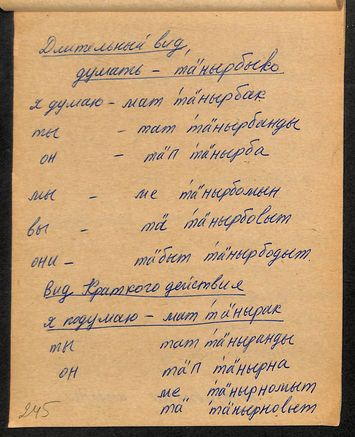 Длительный вид,
думать – тӓнырбыко
я думаю – мат тӓнырбак
ты – тат тӓнырбанды
он – тӓп тӓнырба
мы – ме тӓнырбомын
вы – тӓ тӓнырбовыт
они – тӓбыт тӓнырбодыт.
Вид Краткого действия
я подумаю – мат тӓнырак
ты тат тӓныранды
он тӓп тӓнырна
ме тӓнырномыт
тӓ тӓнырновыт
245